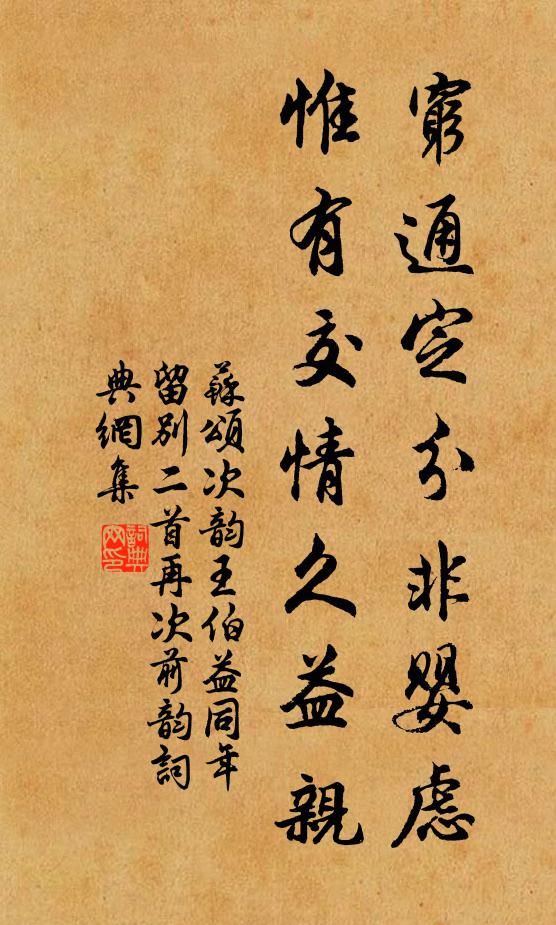 窮通定分非嬰慮
惟有交情久益親
蘇頌次韵王伯益同年
留別二首再次前韵詞
典網集
詞典
网印